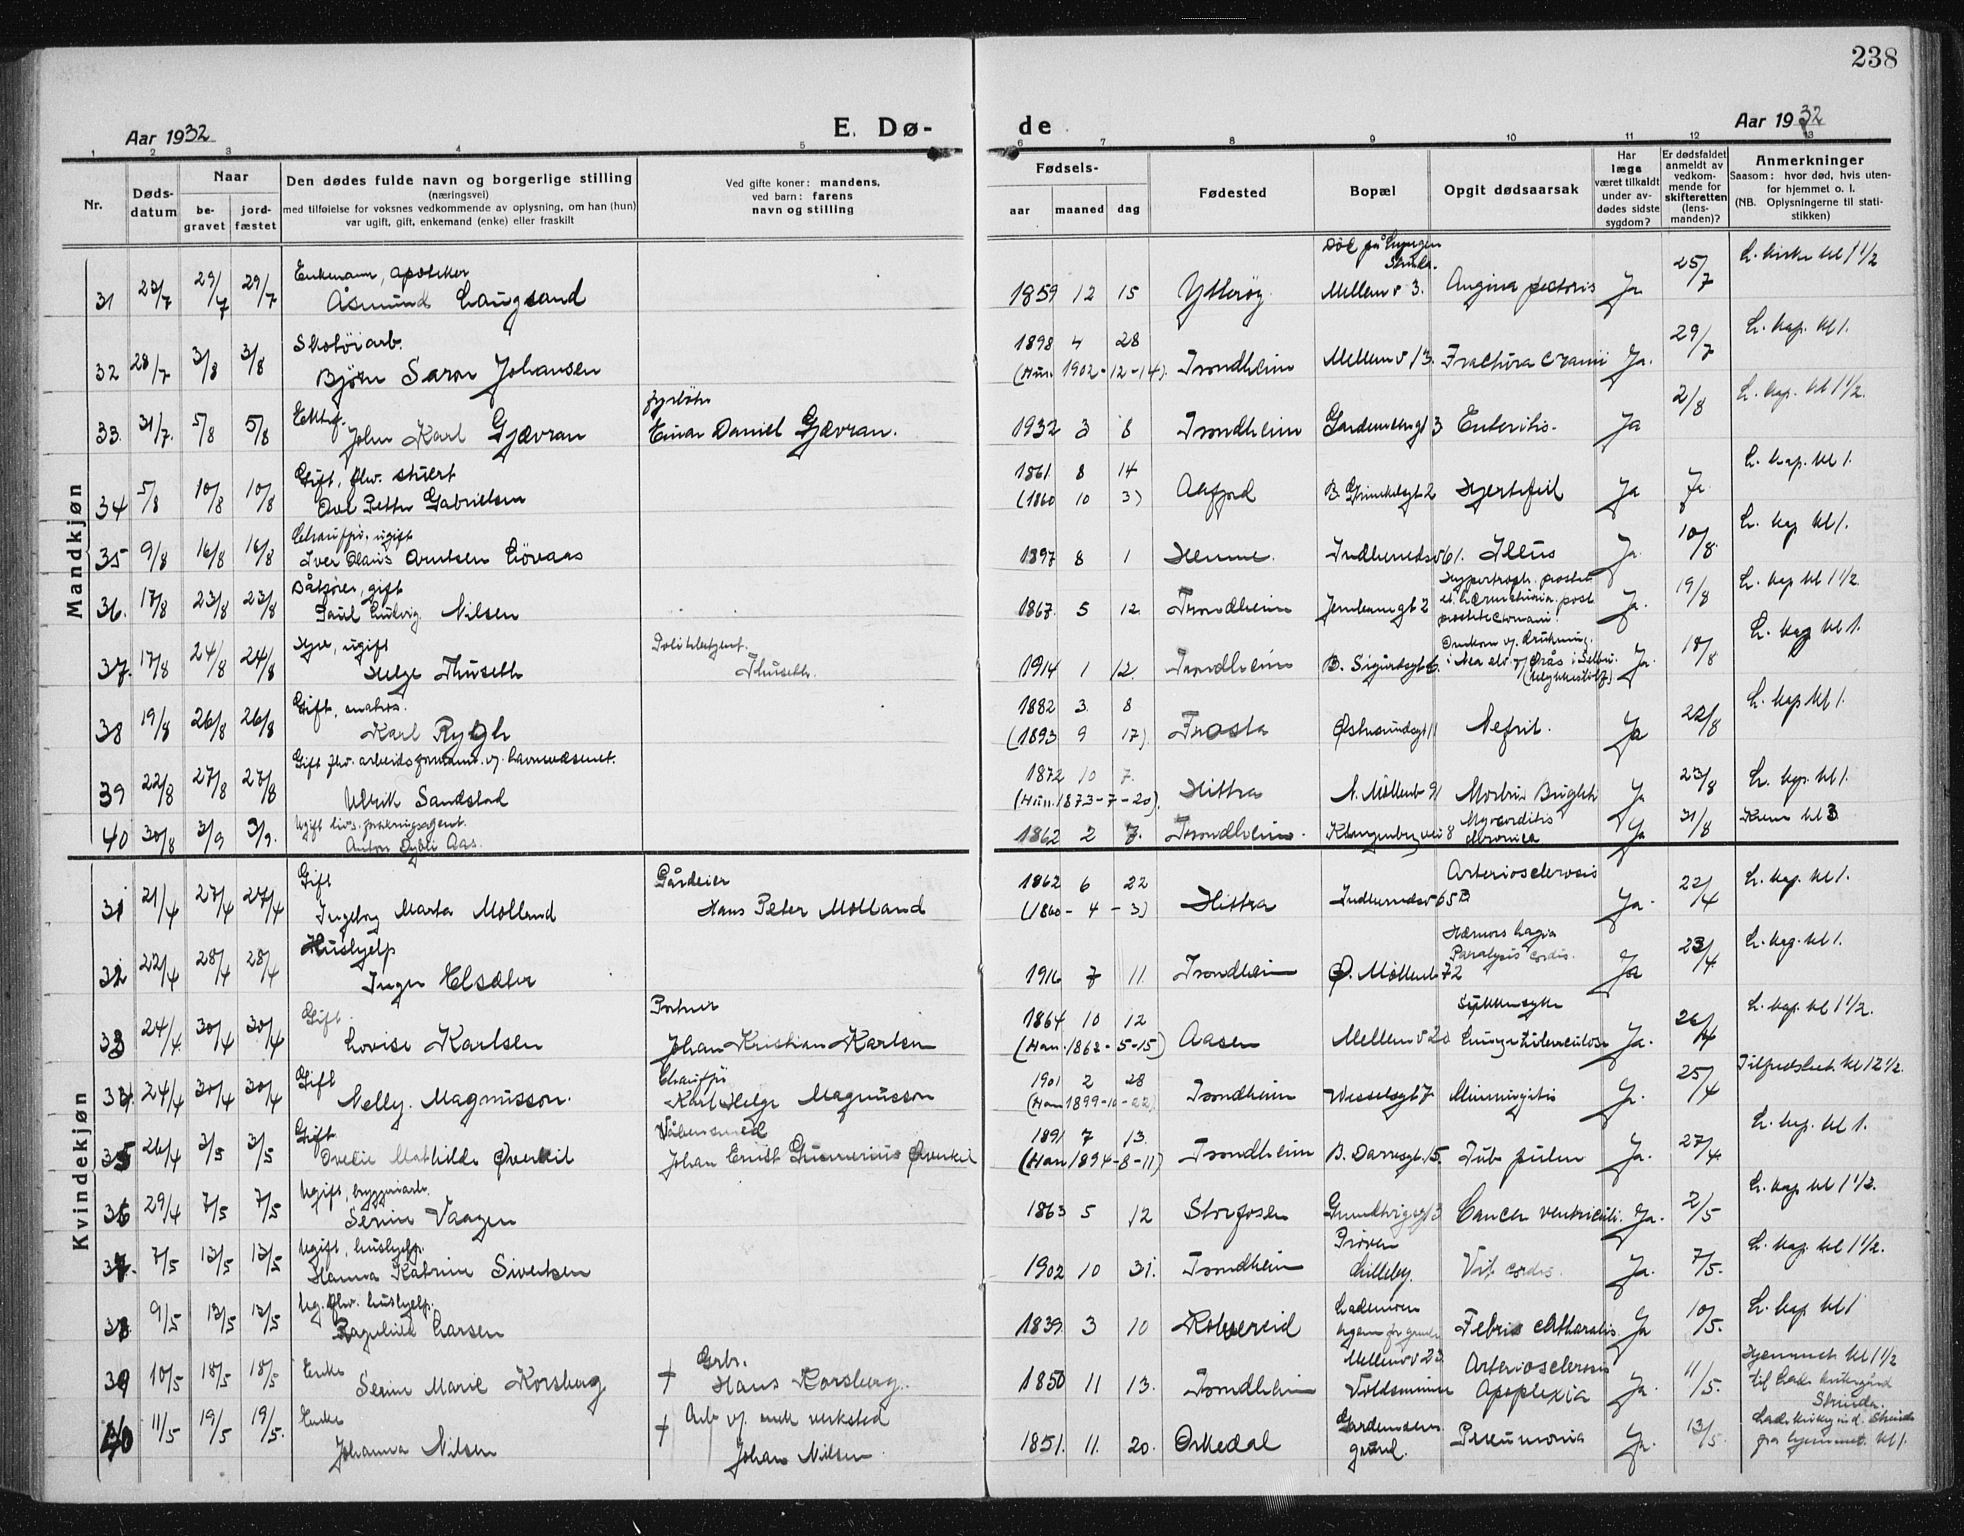 238
Aar 1932
E. Dø-
de
Aar 1932
1 2 3 4 5 6 7 8 9 10 11 12 13
Nr.
Døds-
datum
Naar
be-
gravet
jord-
fæstet
Den dødes fulde navn og borgerlige stilling
(næringsvei)
med tilføielse for voksnes vedkommende av oplysning, om han (hun)
var ugift, gift, enkemand (enke) eller fraskilt
Ved gifte koner: mandens,
ved barn: farens
navn og stilling
Fødsels-
aar
maaned
dag
Fødested
Bopæl
Opgit dødsaarsak
Har
læge
været tilkaldt
under av-
dødes sidste
sygdom?
Er dødsfaldet
anmeldt av
vedkom-
mende for
skifteretten
(lens-
manden)?
Anmerkninger
Saasom: hvor død, hvis uten-
for hjemmet o. l.
(NB. Oplysningerne til stati-
stikken)
Mandkjøn
Enkemann, apoteker
31 23/7 29/7 29/7 Åsmund Laugsand 1859 12 15 Ytterøy Mellemv 3. Angina pectoris Ja 25/7 L. kirke kl 1 1/2
Skotøiarb. 1898 4 28
32 28/7 3/8 3/8 Bjørn Saron Johansen (Hun. 1902-12-14). Trondheim Mellemv 13. Fractura cranii Ja. 29/7 L. kap. kl 1.
Ektef. fyrbøter
33. 31/7. 5/8 5/8 John Karl Gjævran Einar Daniel Gjævran. 1932 3 8 Trondheim Gardemoensgt 3 Enteritis. Ja 2/8 L. kap. kl 1 1/2.
Gift, fhv. stuert 1861 8 14
34 5/8 10/8 10/8 Ove Petter Gabrielsen (1860 10 3) Aafjord 2 Hjertefeil Ja Ja L. kap. kl 1.
Chauffør, ugift
35 9/8 16/8 16/8 Iver Olaus Arntsen Løvaas 1897 8 1 Hemne. Indherredsv 61. Ileus Ja. 10/8 L. kap kl 1.
Båtfører, gift
36. 17/8 23/8 23/8 Paul Ludvig Nilsen 1867. 5 12 Trondheim Jernbanegt 2 Hypertroph. prostat. et hæmaturia post Ja. 19/8 L. kap kl 1 1/2
ugift Politibetjent
37. 17/8 24/8 24/8 Helge Thuseth Thuseth. 1914 1 12 Trondheim B. Sigurdsgt 6. Omkom v/ drukning i Nea elv v/ i Selbu. (ulykkestilf) Ja. 18/8 L. kap kl 1.
Gift, 1882 3 8
38 19/8 26/8 26/8 Karl Rygh (1893 9 17). Frosta Østersundsgt 11 Nefrit. Ja 22/8 L. kap kl 1.
Gift fhv. arbeidsformann v/ havnevæsenet. 1872 10 7.
39 22/8 27/8 27/8 Ulrik Sandstad (Hun. 1873-7-20). Hittra N. Møllenb 91 Morbus Brigthi Ja 23/8 L. kap. kl 1.
Ugift livsforsikringsagent.
40 30/8 3/9 3/9. Anton Aas. 1862 2 7. Trondheim. 8 Myocarditis chronica Ja 31/8 Krem kl 3
Kvindekjøn
Gift Gårdeier 1862 6 22 Arteriosclerosis
31 21/4 27/4 27/4 Ingeborg Marta Molland Hans Peter Molland (1860-4-3) Hittra Indherredsv 65 B Ja. 22/4 L. kap. kl 1.
Hushjelp
32 22/4 28/4 28/4 Inger Elsæter 1916 7 11 Trondheim Ø. Møllenb 72 Paralysis cordis. Ja 23/4 L. kap. kl 1.
Gift. Portner 1864 10 12 Sukkersyke
33 24/4. 30/4 30/4 Lovise Karlsen Johan Kristian Karlsen (Han. 1862-5-15) Aasen Mellemv 20 Lungetuberculose Ja. 26/4 L. kap. kl 1 1/2.
Gift Chauffør 1901 2 28
34. 24/4 30/4 30/4 Nelly. Magnusson. Karl Helge Magnusson (Han 1899-10-22) Trondheim Wesselsgt 7 Meningitis Ja. 25/4 Tilfredshet kl 12 1/2.
Gift Våbensmed 1891 7 13.
35 26/4 3/5 3/5 Ovedie Mathilde Øverkil Johan Ernst Gunnerius Øverkil (Han 1894-8-11) Trondheim B. Darresgt 15. Tub. pulm Ja. 27/4 L. kap. kl 1.
Ugift, bryggeriarb.
36 29/4 7/5 7/5 Serine Vaagen 1863 5 12 Storfosen Grundtvigsgt 3 Cancer ventriculi. Ja. 2/5 L. kap kl 1 1/2.
Ugift, hushjelp.
37. 7/5 13/5 13/5 Hanna Katrine Sivertsen 1902 10 31. Trondheim Prøven Lilleby. Vit. cordis. Ja. 7/5. L. kap. kl 1 1/2.
Ug. fhv. hushjelp.
38 9/5 13/5 13/5 Ragnhild Larsen 1839 3 10 Kolvereid Lademoen hjem for gamle Febris catharalis Ja 10/5. L. kap kl 1
Enke Grbr. Mellemv 23 Arteriosclerosis
39 10/5 18/5 18/5 Serine Marie Korsberg † Hans Korsberg. 1850 11 13. Trondheim Voldsminne Apoplexia Ja. 11/5. Hjemmet kl 1 1/2 til Lade kirkegård Strinda.
Enke Arb. v/ mek verksted
40 11/5 19/5 19/5. Johanna Nilsen † Johan Nilsen 1851. 11. 20. Orkedal Gardemoens gaard. Pneumonia Ja. 13/5. Lade kirkegård. Strinda fra hjemmet. kl 1.